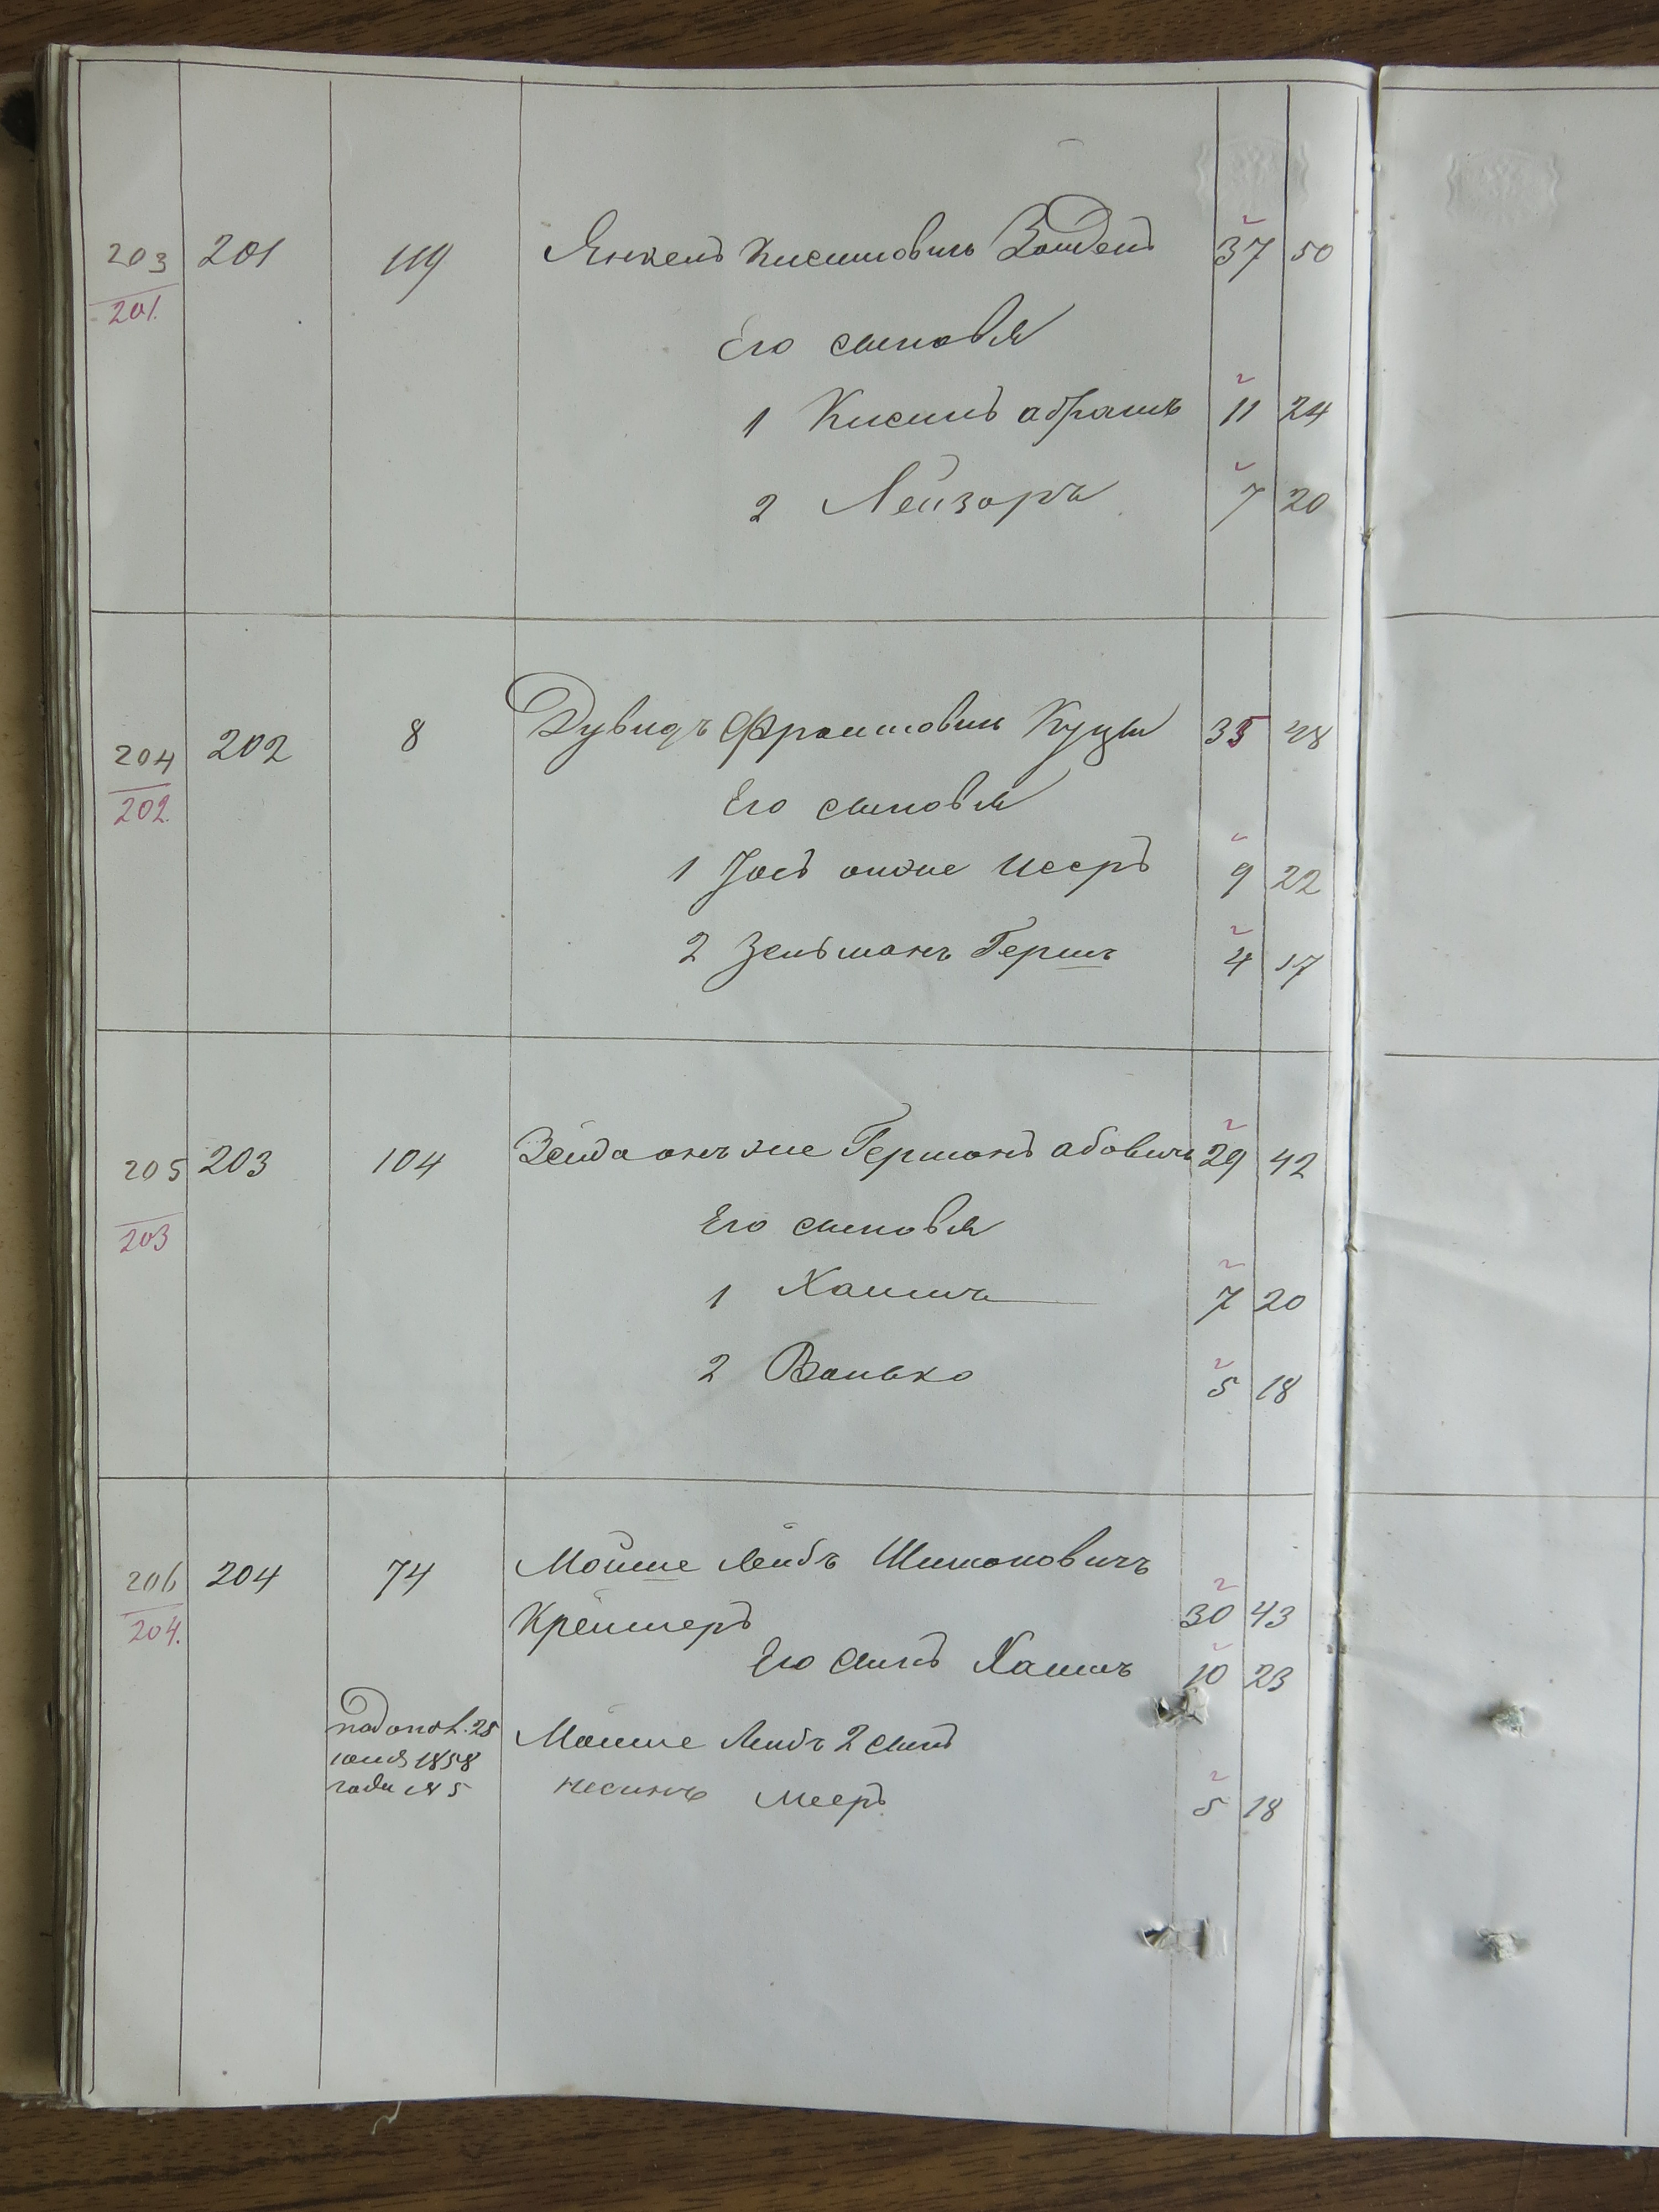 203 201 119 Янкель Кисилевичь Зайдель 37 50
201.
Его сыновья
1 Кисиль абрамъ 11 24
2 Лейзоръ 7 20
204 202 8 Дувидъ Фроимовичь Куцы 35 48
202.
Его сыновья
1 Іось онже Иссеръ 9 22
2 Зельманъ Гершъ 4 17
205 203 104 Зейда онъ же Германъ абовичь 29 42
203
Его сыновья
1 Хаимъ 7 20
2 Волько 5 18
206 204 74 Мойше Лейбъ Шимоновичъ
204. Креймеръ 30 43
Его сынъ Хаимъ 10 23
25 Мойше Лейбъ 2 сынъ
1858
года № 5 Мееръ 5 18